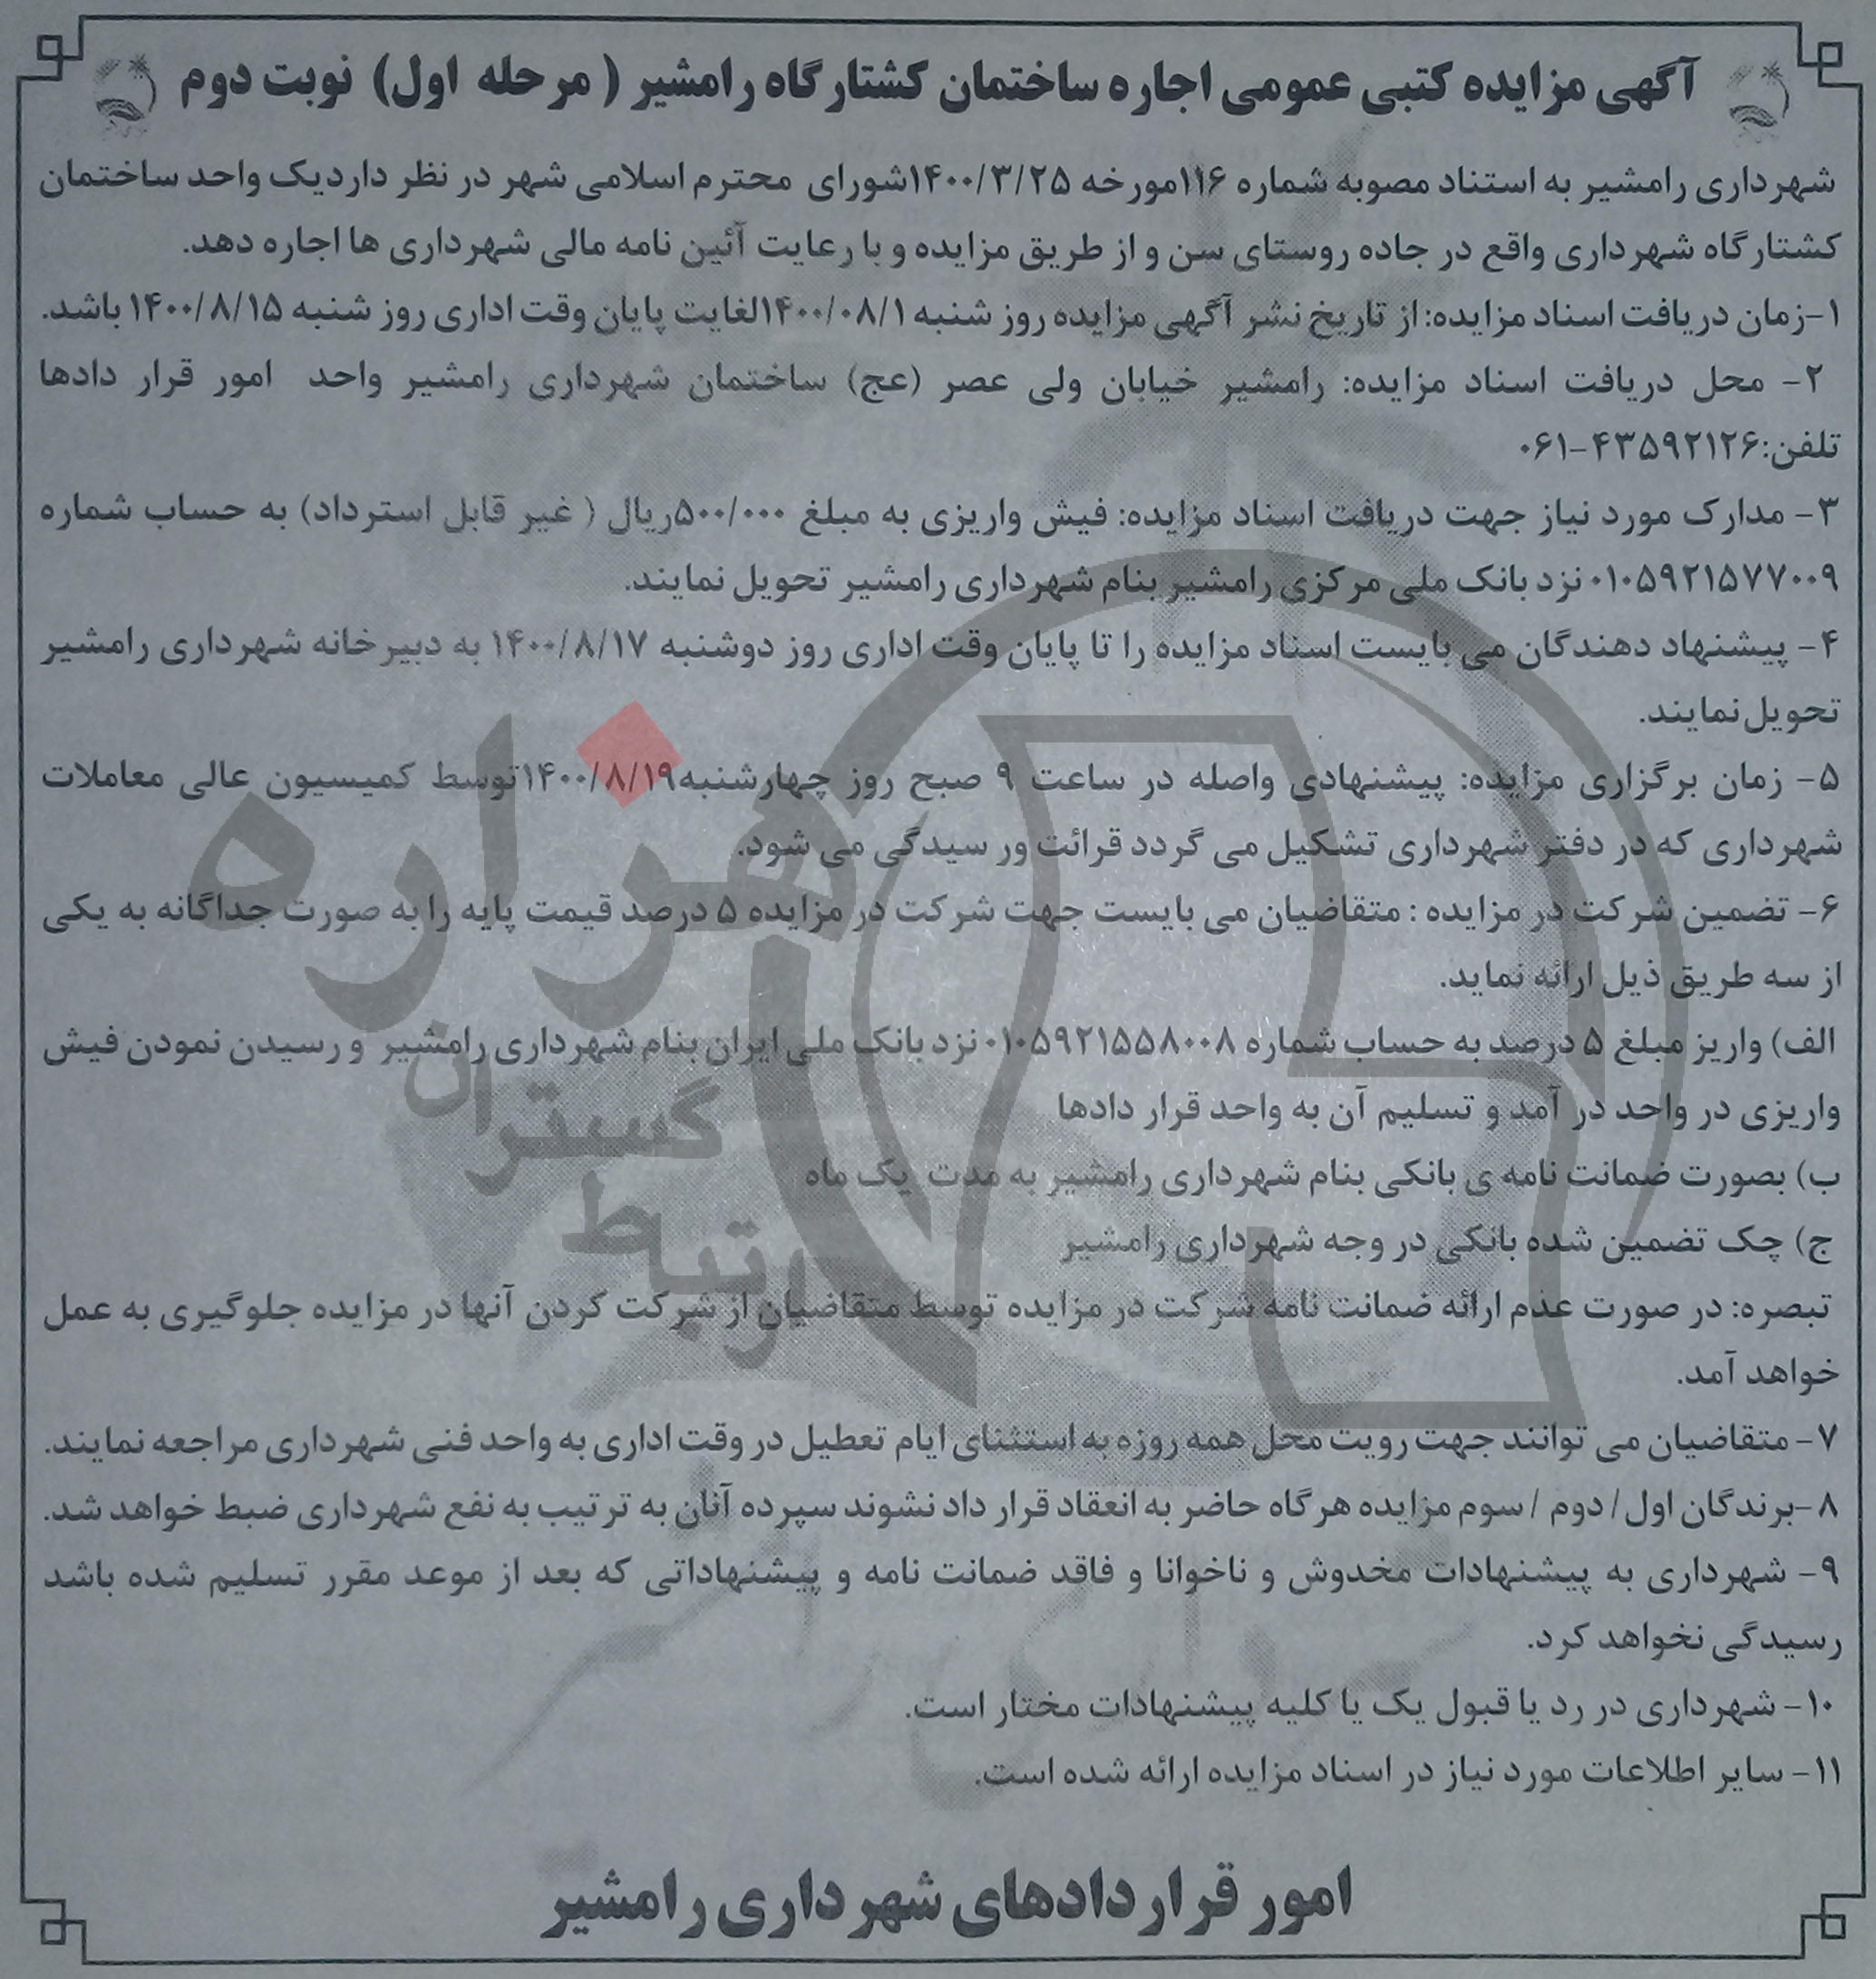 آگهی مزایده کتبی عمومی اجاره ساختمان کشتارگاه رامشیر ( مرحله اول) نوبت دوم
شهرداری رامشیر به استناد مصوبه شماره ۱۱۶مورخه ۱۴۰۰/۳/۲۵شورای محترم اسلامی شهر در نظر داردیک واحد ساختمان
کشتارگاه شهرداری واقع در جاده روستای سن و از طریق مزایده و با رعایت آئین نامه مالی شهرداری ها اجاره دهد.
۱-زمان دریافت اسناد مزایده: از تاریخ نشر آگهی مزایده روز شنبه ۱۴۰۰/۰۸/۱لغایت پایان وقت اداری روز شنبه ۱۴۰۰/۸/۱۵ باشد.
۲- محل دریافت اسناد مزایده: رامشیر خیابان ولی عصر (عج) ساختمان شهرداری رامشیر واحد امور قرار دادها
تلفن:۴۳۵۹۲۱۲۶-۰۶۱
۳- مدارک مورد نیاز جهت دریافت اسناد مزایده: فیش واریزی به مبلغ ۵۰۰/۰۰۰ریال ( غیر قابل استرداد) به حساب شماره
۰۱۰۵۹۲۱۵۷۷۰۰۹ نزد بانک ملی مرکزی رامشیر بنام شهرداری رامشیر تحویل نمایند.
۴- پیشنهاد دهندگان می بایست اسناد مزایده را تا پایان وقت اداری روز دوشنبه ۱۴۰۰/۸/۱۷ به دبیرخانه شهرداری رامشیر
تحویل نمایند.
۵- زمان برگزاری مزایده: پیشنهادی واصله در ساعت ۹ صبح روز چهارشنبه۱۴۰۰/۸/۱۹توسط کمیسیون عالی معاملات
شهرداری که در دفتر شهرداری تشکیل می گردد قرائت ور سیدگی می شود.
۶- تضمین شرکت در مزایده : متقاضیان می بایست جهت شرکت در مزایده ۵ درصد قیمت پایه را به صورت جداگانه به یکی
از سه طریق ذیل ارائه نماید.
الف) واریز مبلغ ۵ درصد به حساب شماره ۰۱۰۵۹۲۱۵۵۸۰۰۸ نزد بانک ملی ایران بنام شهرداری رامشیر و رسیدن نمودن فیش
واریزی در واحد در آمد و تسلیم آن به واحد قرار دادها
ب) بصورت ضمانت نامه ی بانکی بنام شهرداری رامشیر به مدت یک ماه
ج) چک تضمین شده بانکی در وجه شهرداری رامشیر
تبصره: در صورت عدم ارائه ضمانت نامه شرکت در مزایده توسط متقاضیان از شرکت کردن آنها در مزایده جلوگیری به عمل
خواهد آمد.
۷- متقاضیان می توانند جهت رویت محل همه روزه به استثنای ایام تعطیل در وقت اداری به واحد فنی شهرداری مراجعه نمایند.
۸-برندگان اول/ دوم / سوم مزایده هرگاه حاضر به انعقاد قرار داد نشوند سپرده آنان به ترتیب به نفع شهرداری ضبط خواهد شد.
۹- شهرداری به پیشنهادات مخدوش و ناخوانا و فاقد ضمانت نامه و پیشنهاداتی که بعد از موعد مقرر تسلیم شده باشد
رسیدگی نخواهد کرد.
۱۰- شهرداری در رد یا قبول یک یا کلیه پیشنهادات مختار است.
۱۱- سایر اطلاعات مورد نیاز در اسناد مزایده ارائه شده است.
امور قراردادهای شهرداری رامشیر
هزاره
گستران
ارتباط